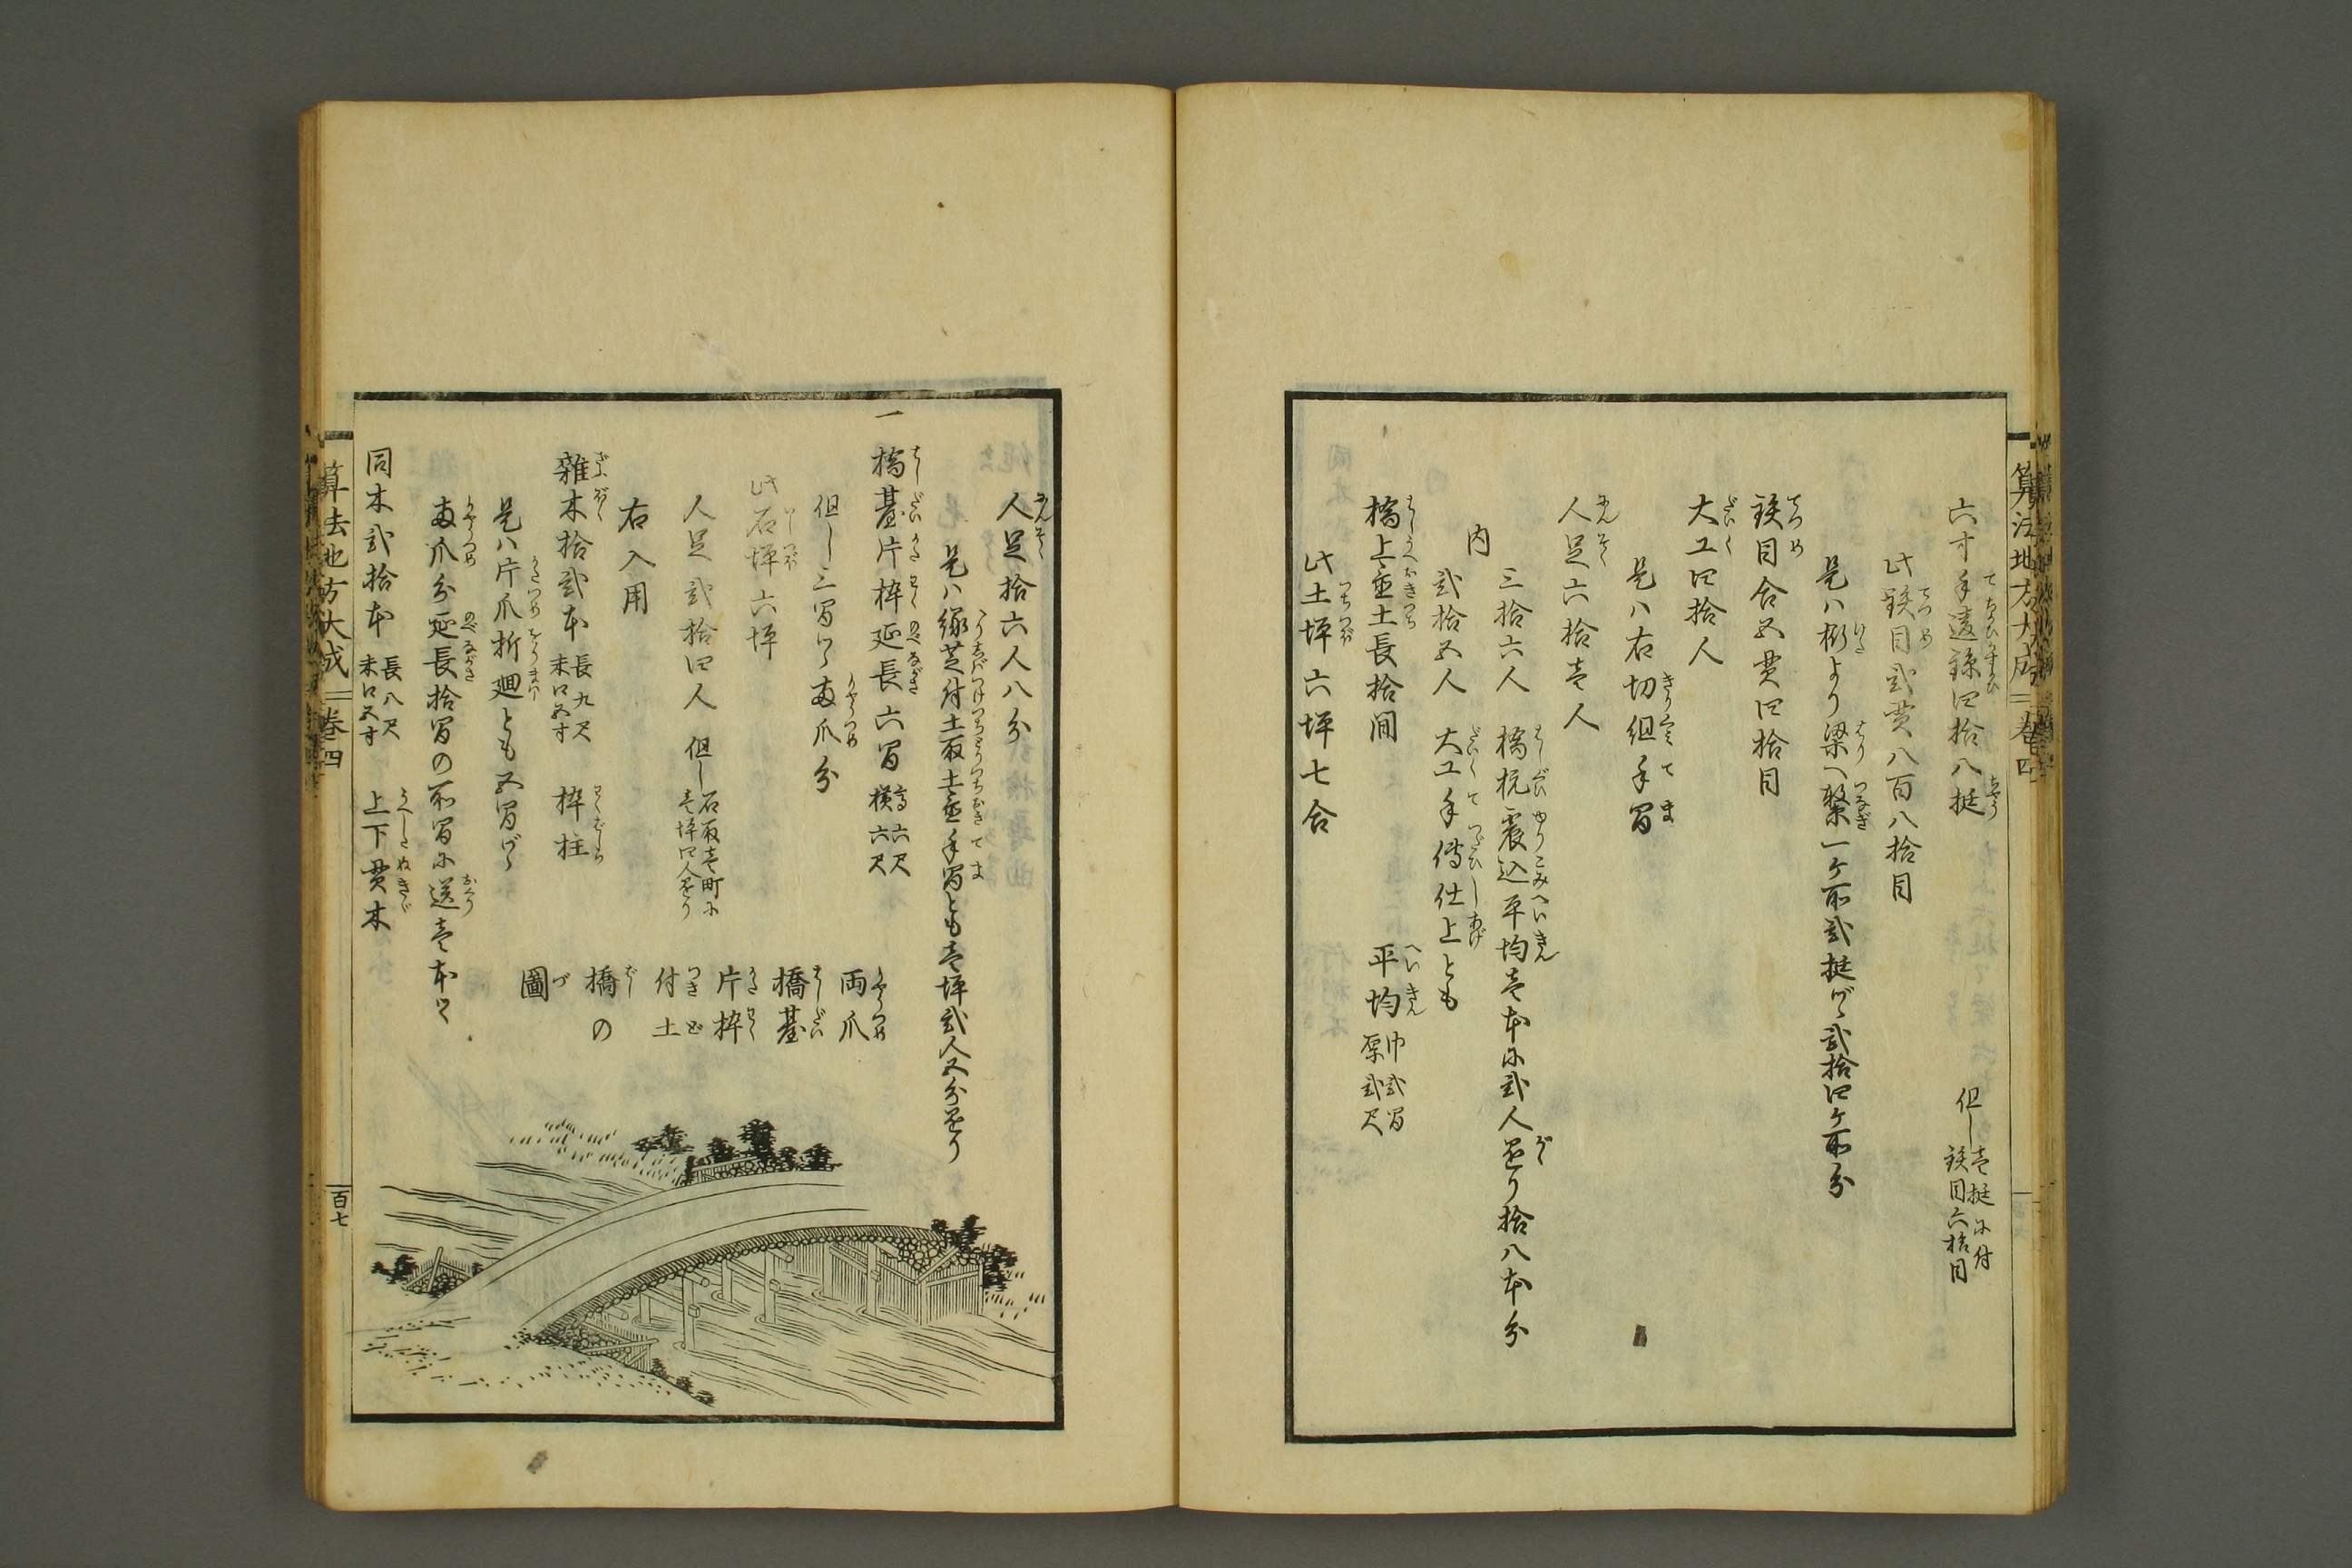 六寸手違鎹四拾八挺　但し壱挺ニ付鉄目六拾目
此鉄目弐貫八百八拾目
是ハ桁より梁へ繋一ケ所弐挺ヅヽ弐拾四ケ所分
鉄目合五貫四拾目
大工四拾人
是ハ右切組手間
人足六拾壱人
内
三拾六人　橋杭震込平均壱本ニ弐人ヅヽ拾八本分
弐拾五人　大工手伝仕上とも
橋上置土長拾間　平均　巾弐間　厚弐尺
此土坪六坪七合
人足拾六人八分
是ハ縁芝付土取土置手間とも壱坪弐人五分
一　橋䑓片枠延長六間　高六尺　横六尺
但し三間ヅヽ両爪分
此石坪六坪
人足弐拾四人　但し石取壱町ニ壱坪四人
右入用
雑木拾弐本　長九尺　末口五寸　枠柱
是ハ片爪折廻とも五間ヅヽ
両爪分延長拾間の所間ニ送壱本ヅヽ
同木弐拾本　長八尺　末口五寸　上下貫木
両爪
橋䑓
片枠
付土
橋の
圖
算法地方大成　巻四
百七